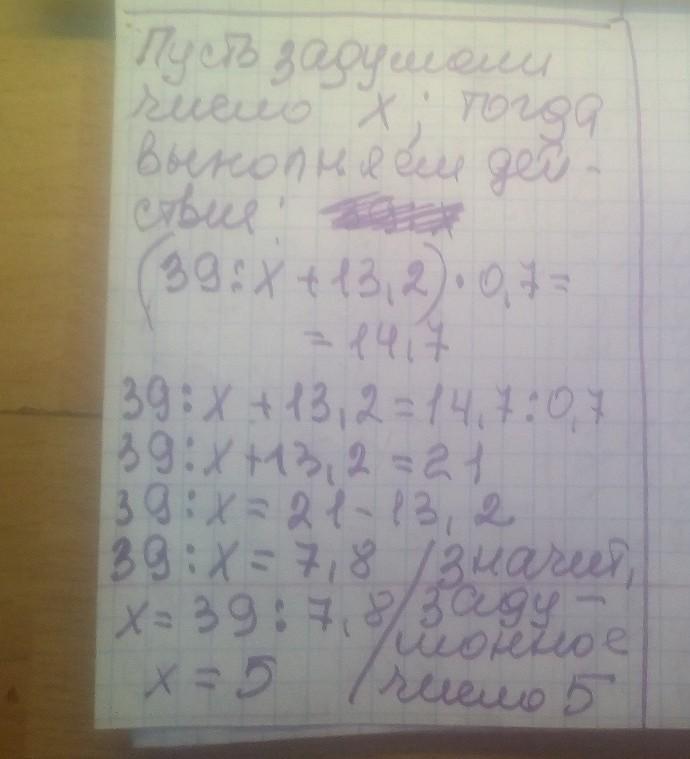 Пусть задумали
число x; тогда
выполняем дей-
ствие:
(39:x+13,2)·0,7=
=14,7
39:x+13,2=14,7:0,7
39:x+13,2=21
39:x=21-13,2
39:x=7,8
x=39:7,8
x=5
/значит,
заду-
манное
число 5